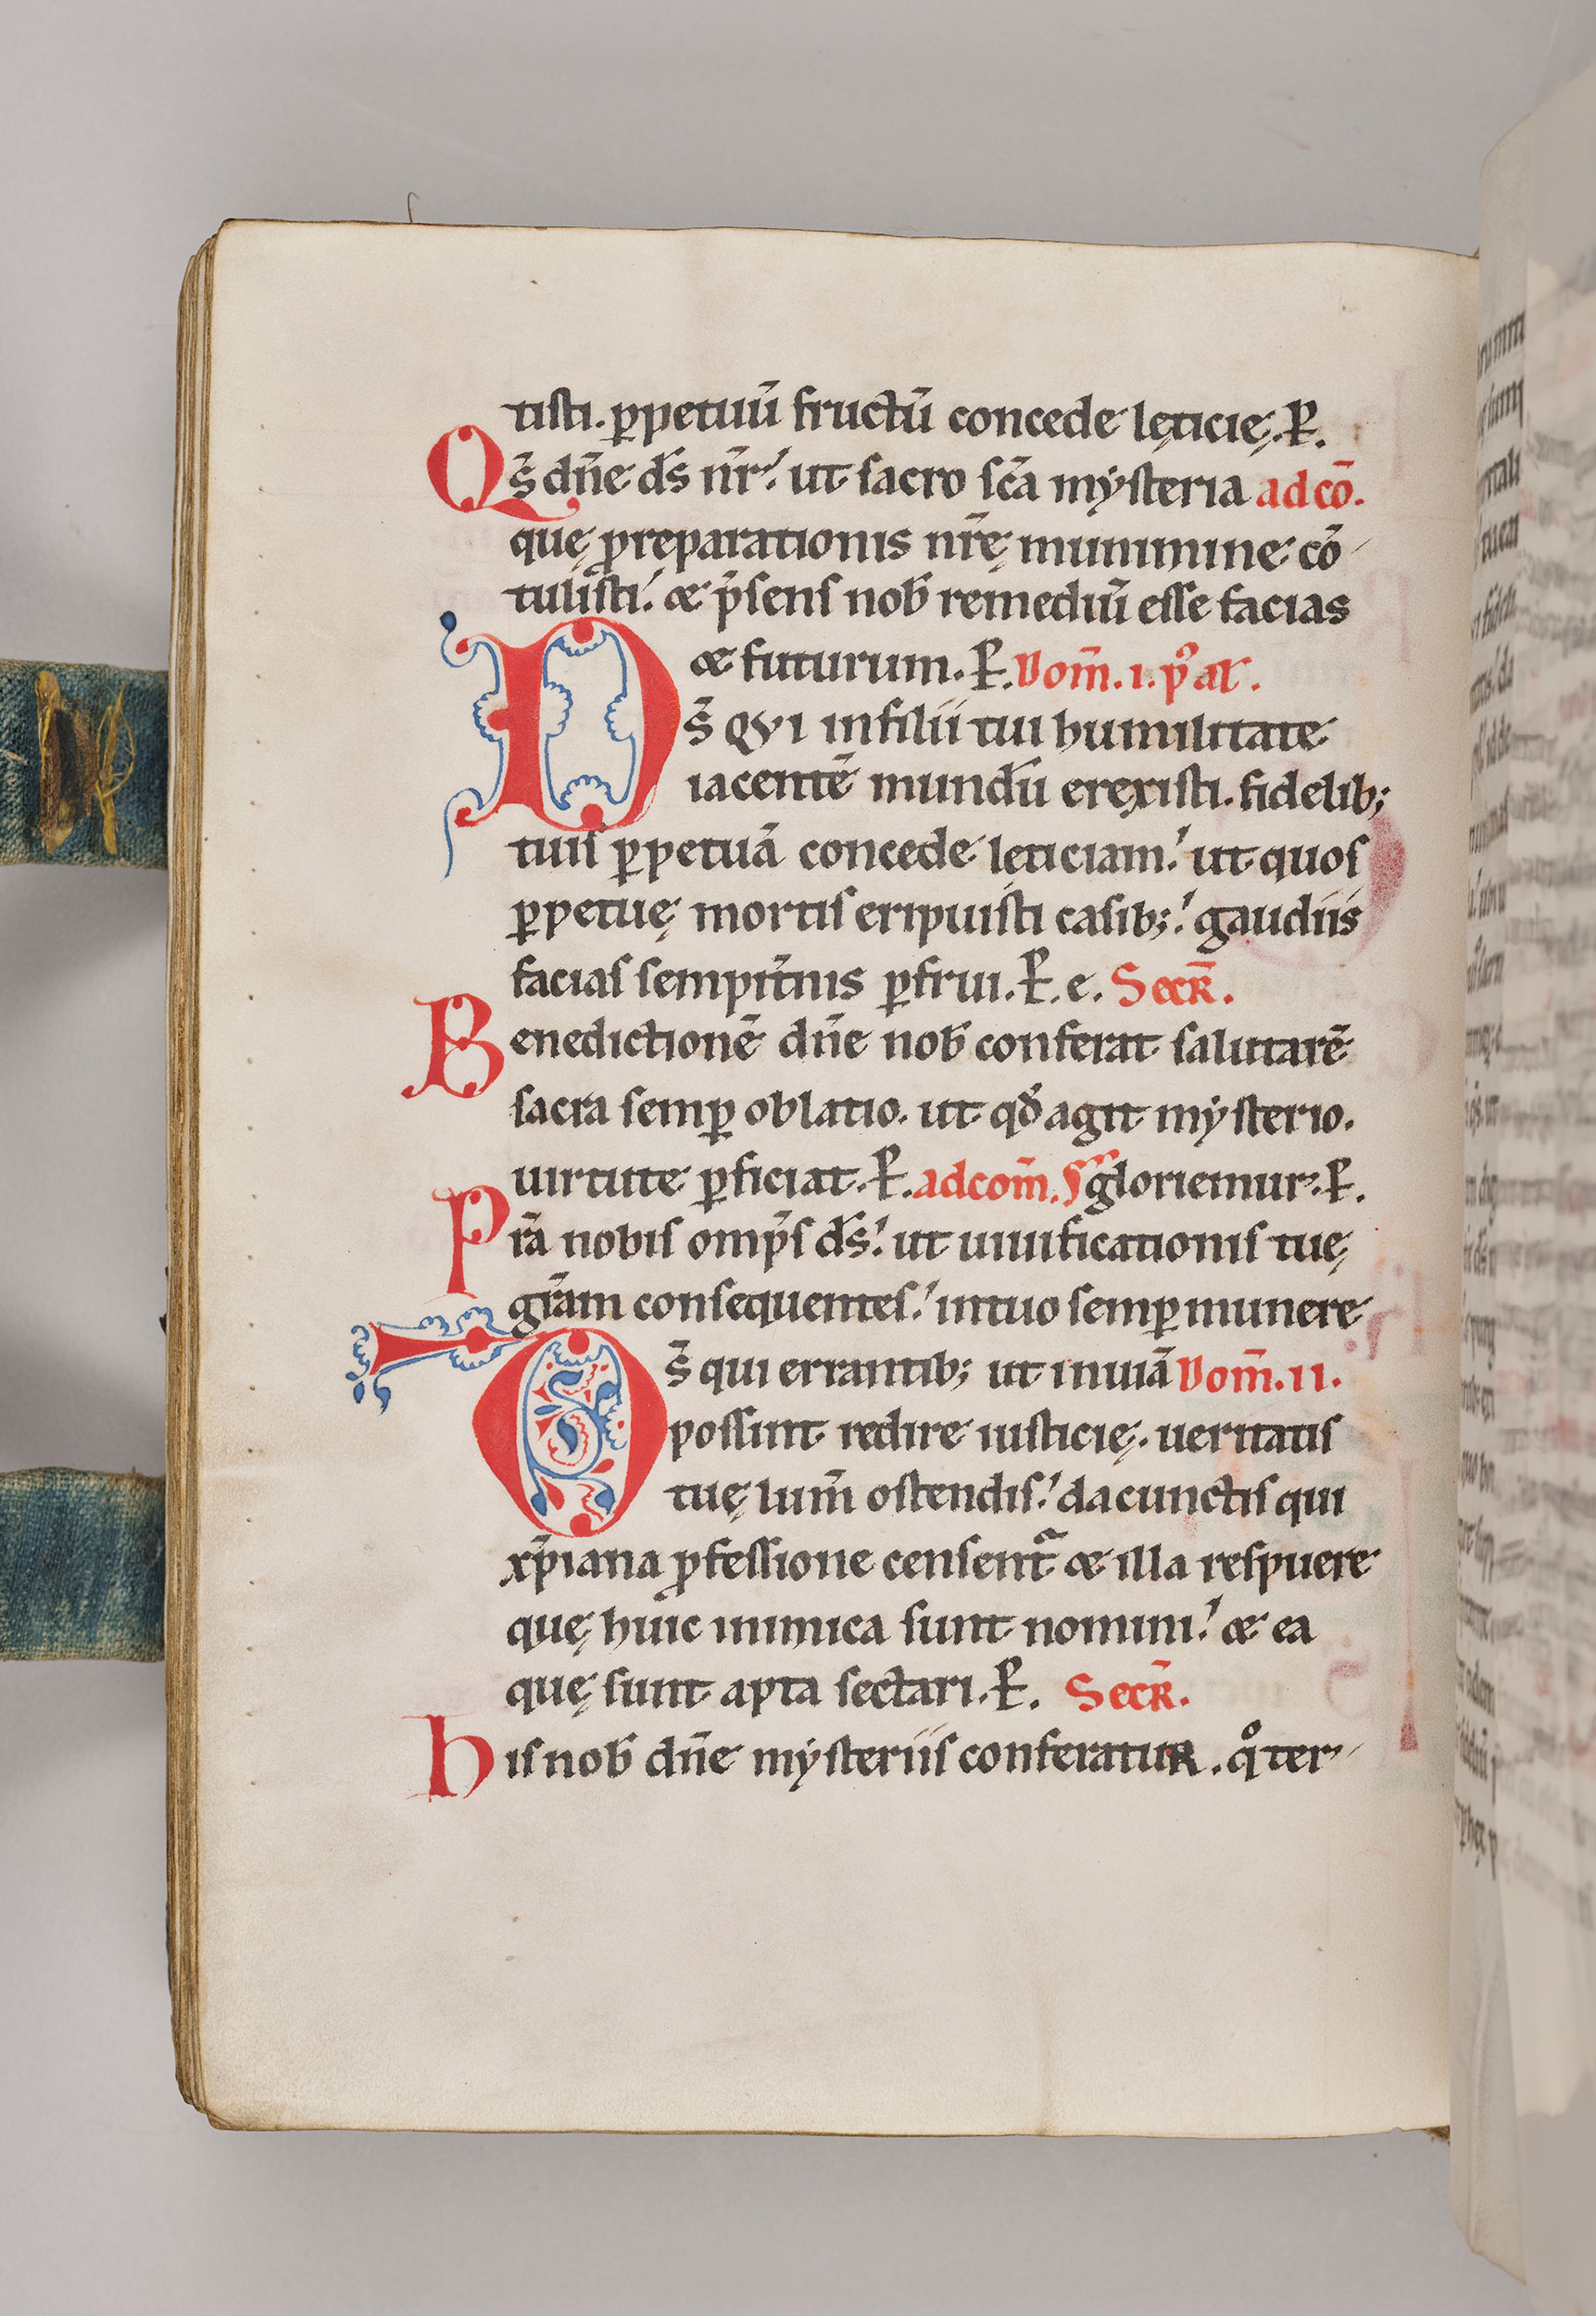 tisti. ꝑpetuū fructū concede lęticię. P̵.
Qs̄ dn̄e ds̄ nr̄ ut sacro sc̄a mẏsteria ad cō.
quę p̄reparationis nr̄ę munimine cō
tulisti. & p̄sens nob̄ remediū esse facias
& futurum. P̵. Dom̄. i. p̊ al̄.
Ds̄ QVI in filii tui humilitate
iacentē mundū erexisti. fidelib;
tuis ꝑpetuā concede lęticiam. ut quos
ꝑpetuę mortis eripuisti casib; gaudiis
facias sempit̄nis ꝑfrui. P̵. e. Secr̄.
Benedictionē dn̄e nob̄ conferat salutarē
sacra semꝑ oblatio. ut qd̄ agit mẏsterio.
uirtute ꝑficiat. P̵. ad com̄. gloriemur. P̵.
Pr̄a nobis omp̄s ds̄. ut uiuificationis tuę
gr̄am consequentes. in tuo semꝑ munere
Ds̄ qui errantib; ut in uiā Dom̄. ii.
possint redire iusticię. ueritatis
tuę lum̄ ostendis. da cunctis qui
xp̄iana ꝓfessione censent᷑ & illa respuere
quę huic inimica sunt nomini. & ea
quę sunt apta sectari. P̵. Secr̄.
his nob̄ dn̄e mẏsteriis conferatuR. qͦ ter